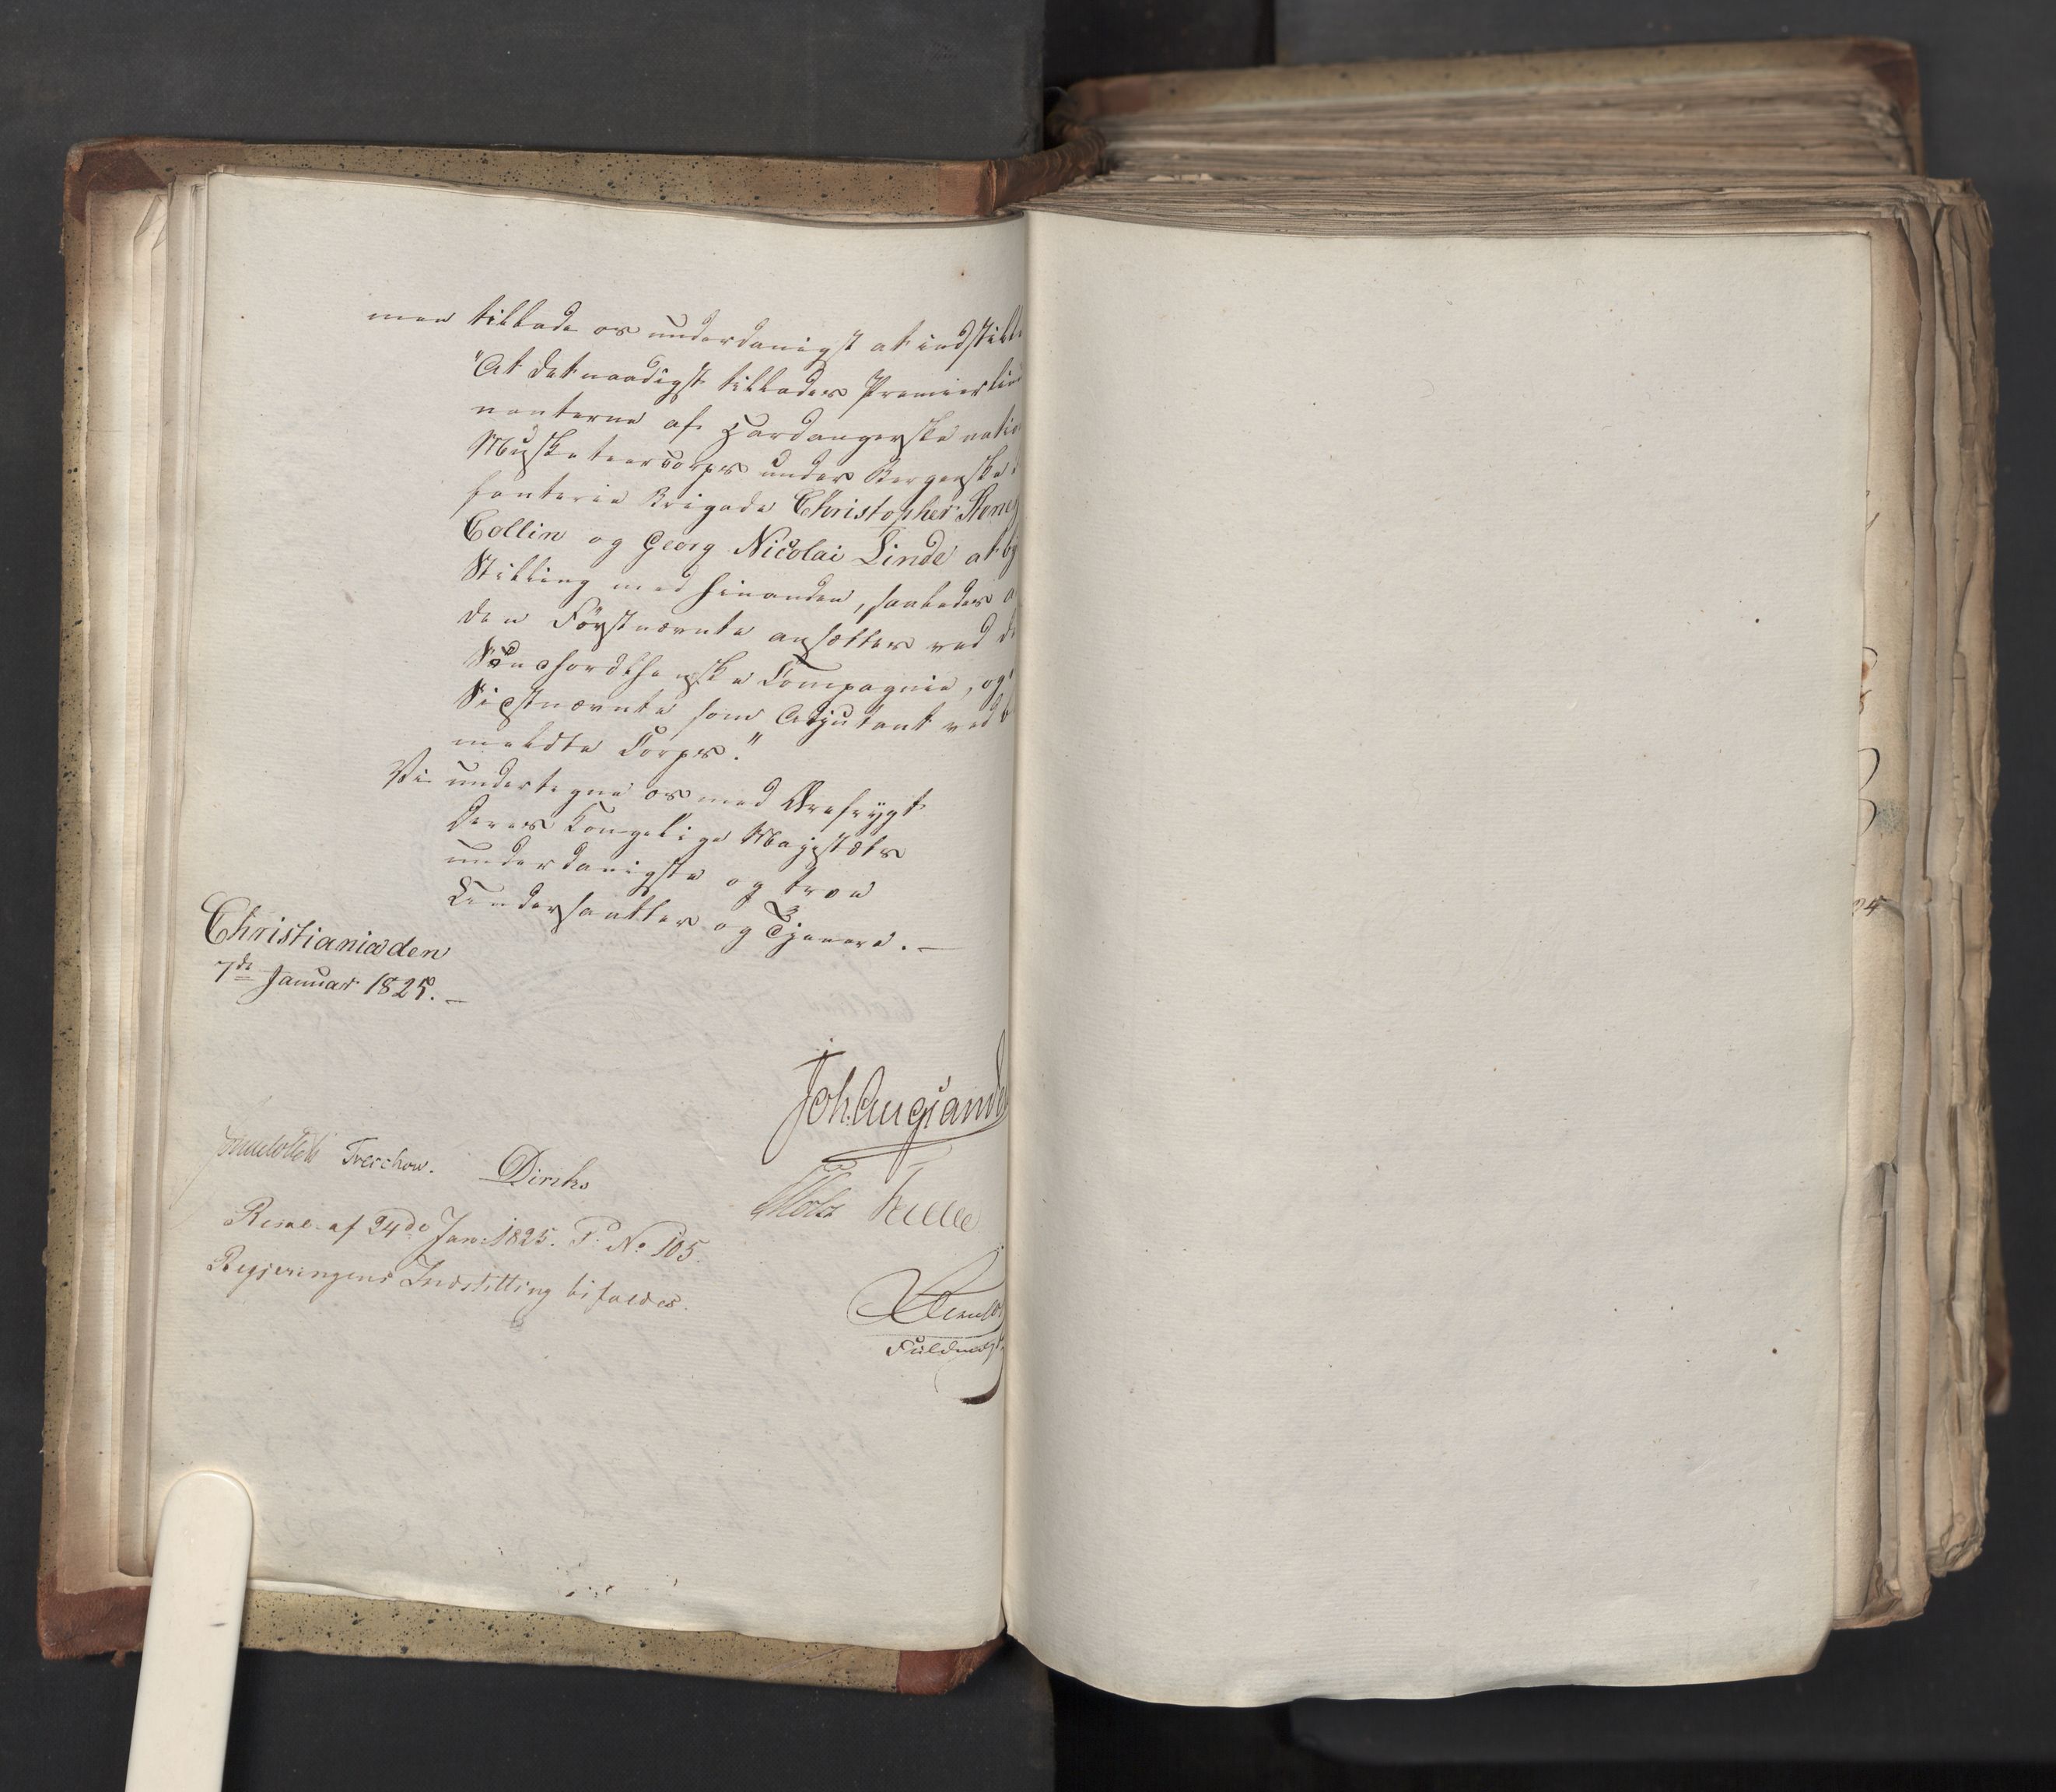 man tillade os underdanigst at indstille
"At det naadigst tillades Premierlieu
nanterne af Hardangerske natio
Musketeercorps under Bergenske
fanterie Brigade Christopher
Collin og Georg Nicolai Linde at by
Stilling med hinanden, saaledes a
den Förstnævnte ansættes ved de
Söndhordlehnske Compagnie, og
Sidstnævnte som Adjutant ved be
meldte Corps."
Vi undertegne os med Ærefrygt
Deres Kongelige Majestæts
underdanigste og troe
Undersaatter og Tjenere. —
Christiania den
7de Januar 1825. —
Joh. Aug. Sande
Treschow. Diriks
Motz
Resol. af 24de Jan: 1825. P. No 105.
Regjeringens Indstilling bifaldes.
Fuldmægt